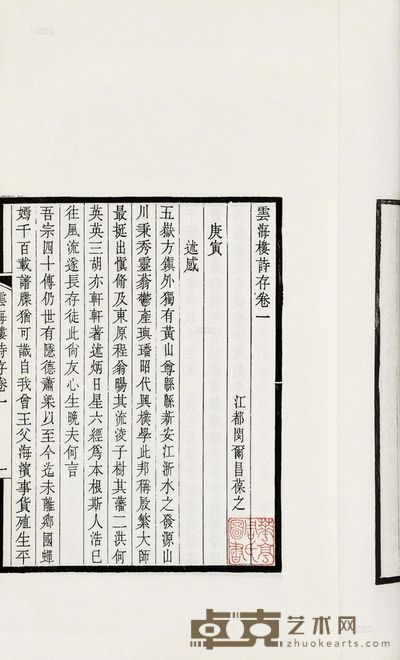 雲海樓詩存卷一
江都閔爾昌葆之
庚寅
述感
五嶽方鎮外獨有黃山尊縣縣新安江浙水之發源山
川秉秀靈蓊鬱產璵璠昭代興樸學此邦稱殷繁大師
最挺出慎脩及東原程翁暘其流淩子樹其藩二洪何
英英三胡亦軒軒著述炳日星六經為本根斯人浩已
往風流遂長存徒此尚友心生晚夫何言
吾宗四十傳仍世有隱德蕭梁以至今迄未離鄉國蟬
嫣千百載譜牒猶可識自我曾王父海濱事貨殖生平
雲海樓詩存卷一
一
卓克艺术网
www.zhuokearts.com